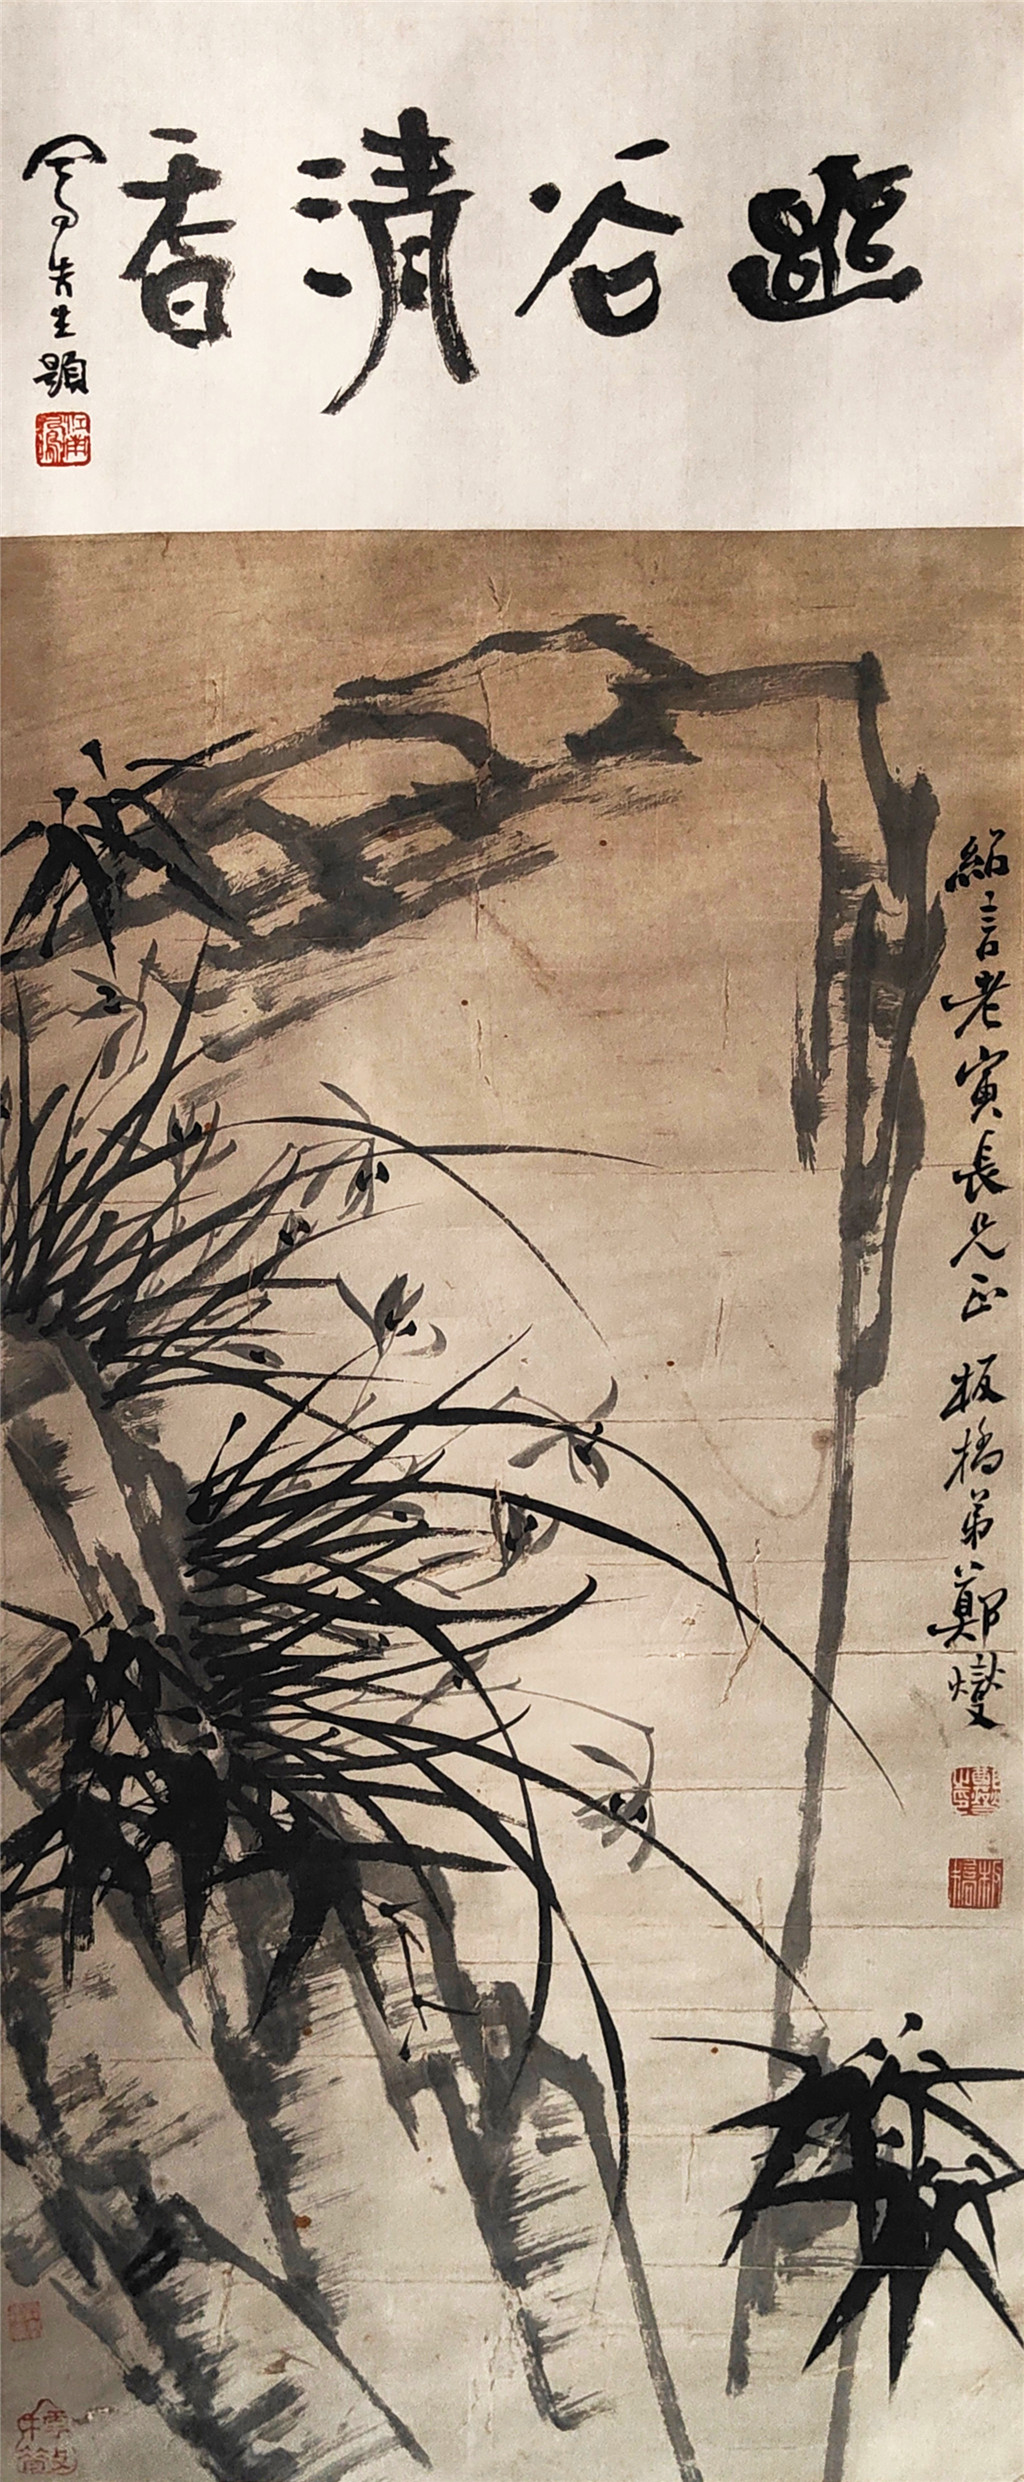 幽谷清香
先生題
紹言老寅長兄正 板橋弟鄭燮
鄭燮
板橋